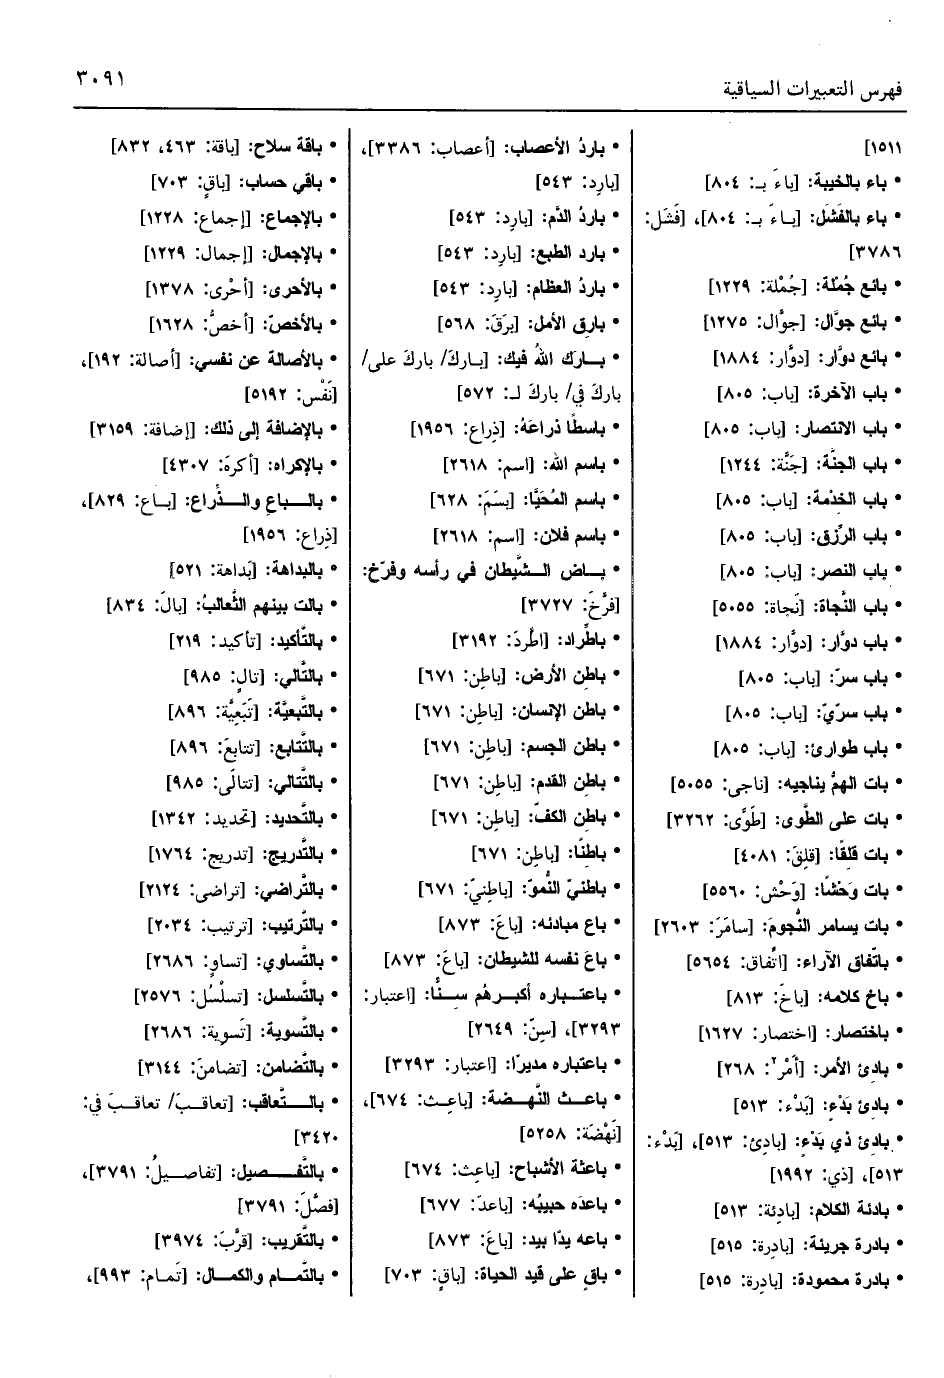 ٣٠٩١
فهرس التعبيرات السياقية
١٥١١]
• باء بالخيبة: [باءَ بـ: ٨٠٤]
• باء بالفَشَل: [بـاءَ بـ: ٨٠٤]، [فَشَل:
٣٧٨٦]
• بائع جُمْلة: [جُمْلة: ١٢٢٩]
• بائع جوَّال: [جوَّال: ١٢٧٥]
• بائع دوَّار: [دوَّار: ١٨٨٤]
• باب الآخرة: [باب: ٨٠٥]
• باب الانتصار: [باب: ٨٠٥]
• باب الجنَّة: [جَنَّة: ١٢٤٤]
• باب الخدْمة: [باب: ٨٠٥]
• باب الرِّزق: [باب: ٨٠٥]
• باب النصر: [باب: ٨٠٥]
• باب النَّجاة: [نَجاة: ٥٠٥٥]
• باب دوَّار: [دوَّار: ١٨٨٤]
• باب سرّ: [باب: ٨٠٥]
• باب سرّيّ: [باب: ٨٠٥]
• باب طوارئ: [باب: ٨٠٥]
• بات الهمُّ يناجيه: [ناجى: ٥٠٥٥]
• بات على الطَّوى: [طَوًى: ٣٢٦٢]
• بات قَلِقًا: [قلِقَ: ٤٠٨١]
• بات وَحْشًا: [وَحْش: ٥٥٦٠]
• بات يسامر النُّجومَ: [سامَرَ: ٢٦٠٣]
• باتِّفاق الآراء: [اتِّفاق: ٥٦٥٤]
• باخ كلامه: [باخَ: ٨١٣]
• باختصار: [اختصار: ١٦٢٧]
• بادِئ الأمر: [أَمْر٢: ٢٦٨]
• بادئ بَدْءٍ: [بَدْء: ٥١٣]
• بادئ ذي بَدْءٍ: [بادِئ: ٥١٣]، [بَدْء:
٥١٣]، [ذي: ١٩٩٢]
• بادئة الكلام: [بادِئة: ٥١٣]
• بادرة جريئة: [بادِرة: ٥١٥]
• بادرة محمودة: [بادِرة: ٥١٥]
• باردُ الأعصاب: [أعصاب: ٣٣٨٦]،
[بارِد: ٥٤٣]
• باردُ الدَّم: [بارِد: ٥٤٣]
• بارد الطبع: [بارِد: ٥٤٣]
• باردُ العظام: [بارِد: ٥٤٣]
• بارِق الأمل: [برَقَ: ٥٦٨]
• بــارَك اللهُ فيك: [بـاركَ/ باركَ على/
باركَ في/ باركَ لـ: ٥٧٢]
• باسطًا ذراعَهُ: [ذِراع: ١٩٥٦]
• باسم الله: [اسم: ٢٦١٨]
• باسم المُحَيَّا: [بسَمَ: ٦٢٨]
• باسم فلان: [اسم: ٢٦١٨]
• بــاض الــشَّيطان في رأسه وفرّخ:
[فرَّخَ: ٣٧٢٧]
• باطِّراد: [اطَّردَ: ٣١٩٢]
• باطن الأرض: [باطِن: ٦٧١]
• باطن الإنسان: [باطِن: ٦٧١]
• باطن الجسم: [باطِن: ٦٧١]
• باطن القدم: [باطِن: ٦٧١]
• باطن الكفّ: [باطِن: ٦٧١]
• باطنًا: [باطِن: ٦٧١]
• باطنيّ النُّموّ: [باطِنيّ: ٦٧١]
• باع مبادئه: [باعَ: ٨٧٣]
• باعَ نفسه للشيطان: [باعَ: ٨٧٣]
• باعتـباره أكبـرهُم سـنًّا: [اعتبار:
٣٢٩٣]، [سِنّ: ٢٦٤٩]
• باعتباره مديرًا: [اعتبار: ٣٢٩٣]
• باعــث النَّهـضة: [باعِـث: ٦٧٤]،
[نَهْضَة: ٥٢٥٨]
• باعثة الأشباح: [باعِث: ٦٧٤]
• باعدَه حبيبُه: [باعدَ: ٦٧٧]
• باعه يدًا بيد: [باعَ: ٨٧٣]
• باقٍ على قيد الحياة: [باقٍ: ٧٠٣]
• باقة سلاح: [باقة: ٤٦٣، ٨٣٢]
• باقي حساب: [باقٍ: ٧٠٣]
• بالإجماع: [إجماع: ١٢٢٨]
• بالإجمال: [إجمال: ١٢٢٩]
• بالأحرى: [أحْرى: ١٣٧٨]
• بالأخصّ: [أخصُّ: ١٦٢٨]
• بالأصالة عن نفسي: [أصالة: ١٩٢]،
[نَفْس: ٥١٩٢]
• بالإضافة إلى ذلك: [إضافة: ٣١٥٩]
• بالإكراه: [أكرهَ: ٤٣٠٧]
• بالــباعِ والــذِّراع: [بـاع: ٨٢٩]،
[ذِراع: ١٩٥٦]
• بالبداهة: [بَداهة: ٥٢١]
• بالت بينهم الثَّعالبُ: [بالَ: ٨٣٤]
• بالتَّأكيد: [تأكيد: ٢١٩]
• بالتَّالي: [تالٍ: ٩٨٥]
• بالتَّبعيَّة: [تَبَعِيَّة: ٨٩٦]
• بالتَّتابع: [تتابعَ: ٨٩٦]
• بالتَّتالي: [تتالَى: ٩٨٥]
• بالتَّحديد: [تحديد: ١٣٤٢]
• بالتَّدريج: [تدريج: ١٧٦٤]
• بالتَّراضي: [تراضى: ٢١٢٤]
• بالتَّرتيب: [ترتيب: ٢٠٣٤]
• بالتَّساوي: [تساوٍ: ٢٦٨٦]
• بالتَّسلسل: [تسلْسُل: ٢٥٧٦]
• بالتَّسوية: [تَسوِية: ٢٦٨٦]
• بالتَّضامن: [تضامنَ: ٣١٤٤]
• بالــتَّعاقب: [تعاقـبَ/ تعاقـبَ في:
٣٤٢٠]
• بالتَّفــصيل: [تفاصـيلُ: ٣٧٩١]،
[فصَّلَ: ٣٧٩١]
• بالتَّقريب: [قرَّبَ: ٣٩٧٤]
• بالتَّمـام والكمـال: [تَمـام: ٩٩٣]،